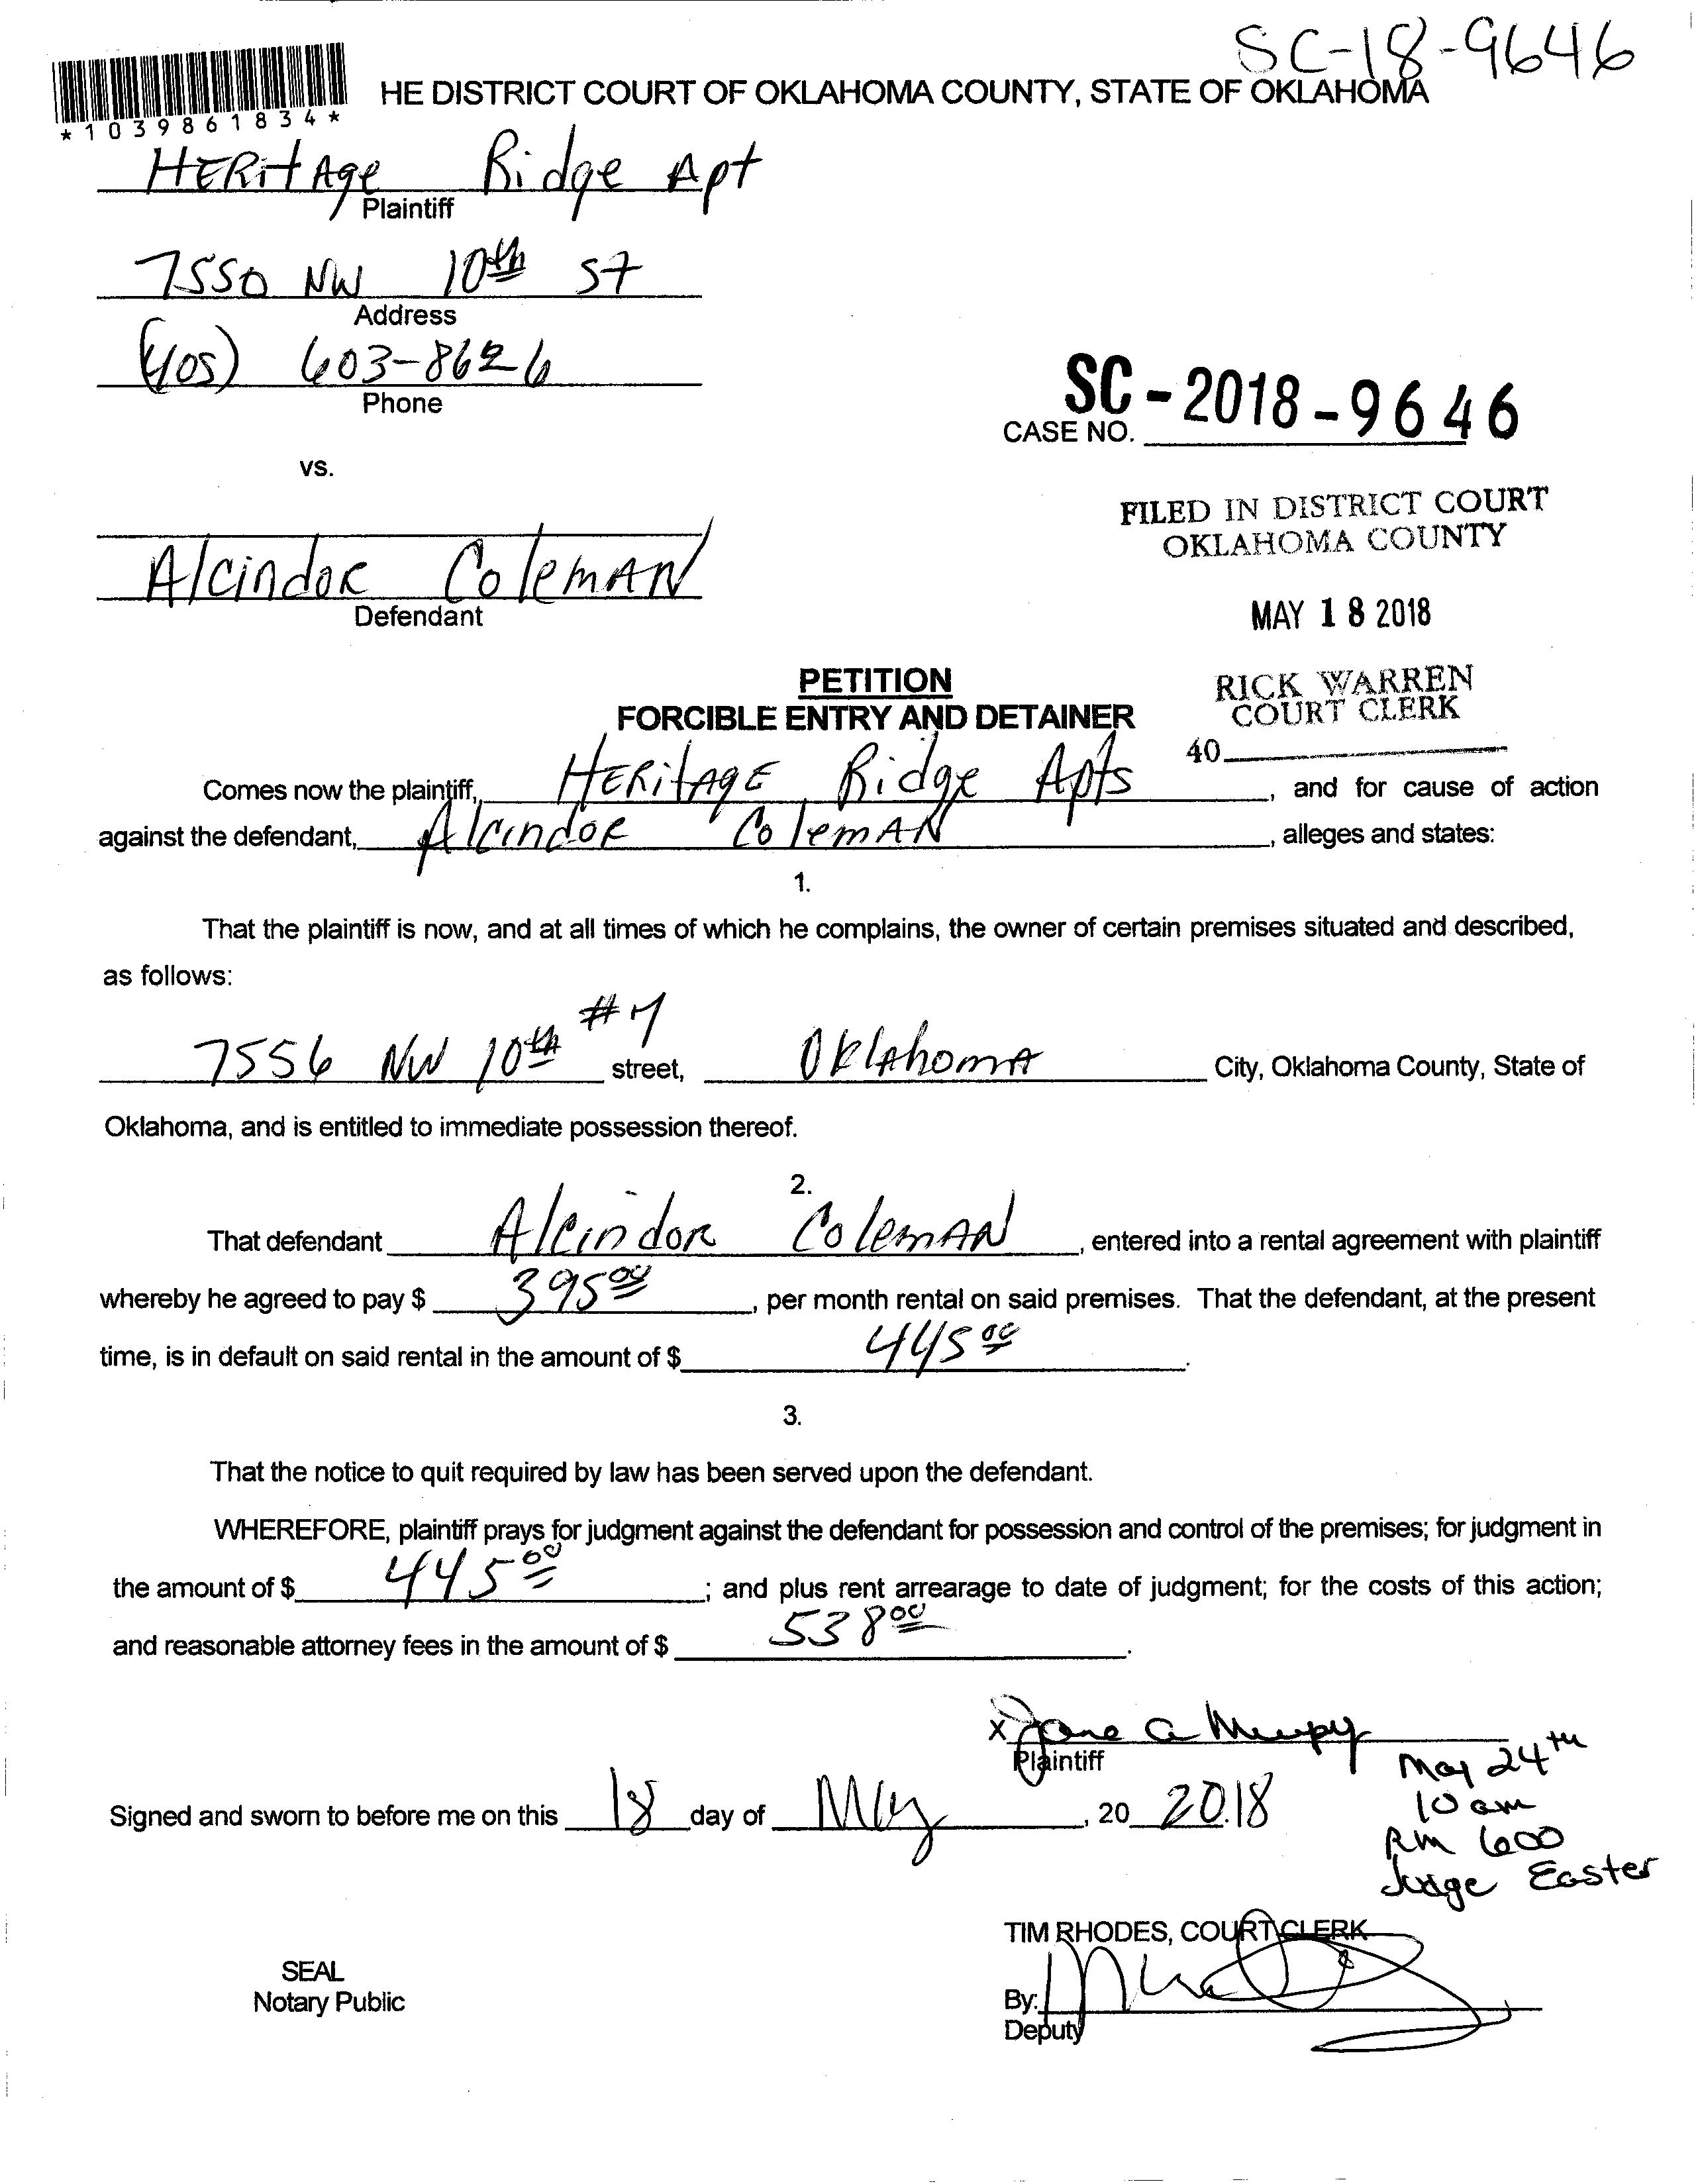 SC-18-9646
HE DISTRICT COURT OF OKLAHOMA COUNTY, STATE OF OKLAHOMA
*1039861834*
HERitAge Ridge Apt
Plaintiff
7550 NW 10th ST
Address
(405) 603-8626
Phone
SC-2018-9646
CASE NO.
vs.
FILED IN DISTRICT COURT
OKLAHOMA COUNTY
Alcindor Coleman
Defendant
MAY 18 2018
PETITION
FORCIBLE ENTRY AND DETAINER
RICK WARREN
COURT CLERK
40
Comes now the plaintiff, HERitAGE Ridge Apts, and for cause of action
against the defendant, Alcindor Coleman, alleges and states:
1.
That the plaintiff is now, and at all times of which he complains, the owner of certain premises situated and described,
as follows:
7556 NW 10th #7 street, Oklahoma City, Oklahoma County, State of
Oklahoma, and is entitled to immediate possession thereof.
2.
That defendant Alcindor Coleman, entered into a rental agreement with plaintiff
whereby he agreed to pay $ 395 00, per month rental on said premises. That the defendant, at the present
time, is in default on said rental in the amount of $ 445 00.
3.
That the notice to quit required by law has been served upon the defendant.
WHEREFORE, plaintiff prays for judgment against the defendant for possession and control of the premises; for judgment in
the amount of $ 445 00; and plus rent arrearage to date of judgment; for the costs of this action;
and reasonable attorney fees in the amount of $ 538 00.
X Jane a
Plaintiff
May 24th
10 am
Rm 600
Judge Easter
Signed and sworn to before me on this 18 day of May, 20 2018
TIM RHODES, COURT CLERK
SEAL
Notary Public
By:
Deputy